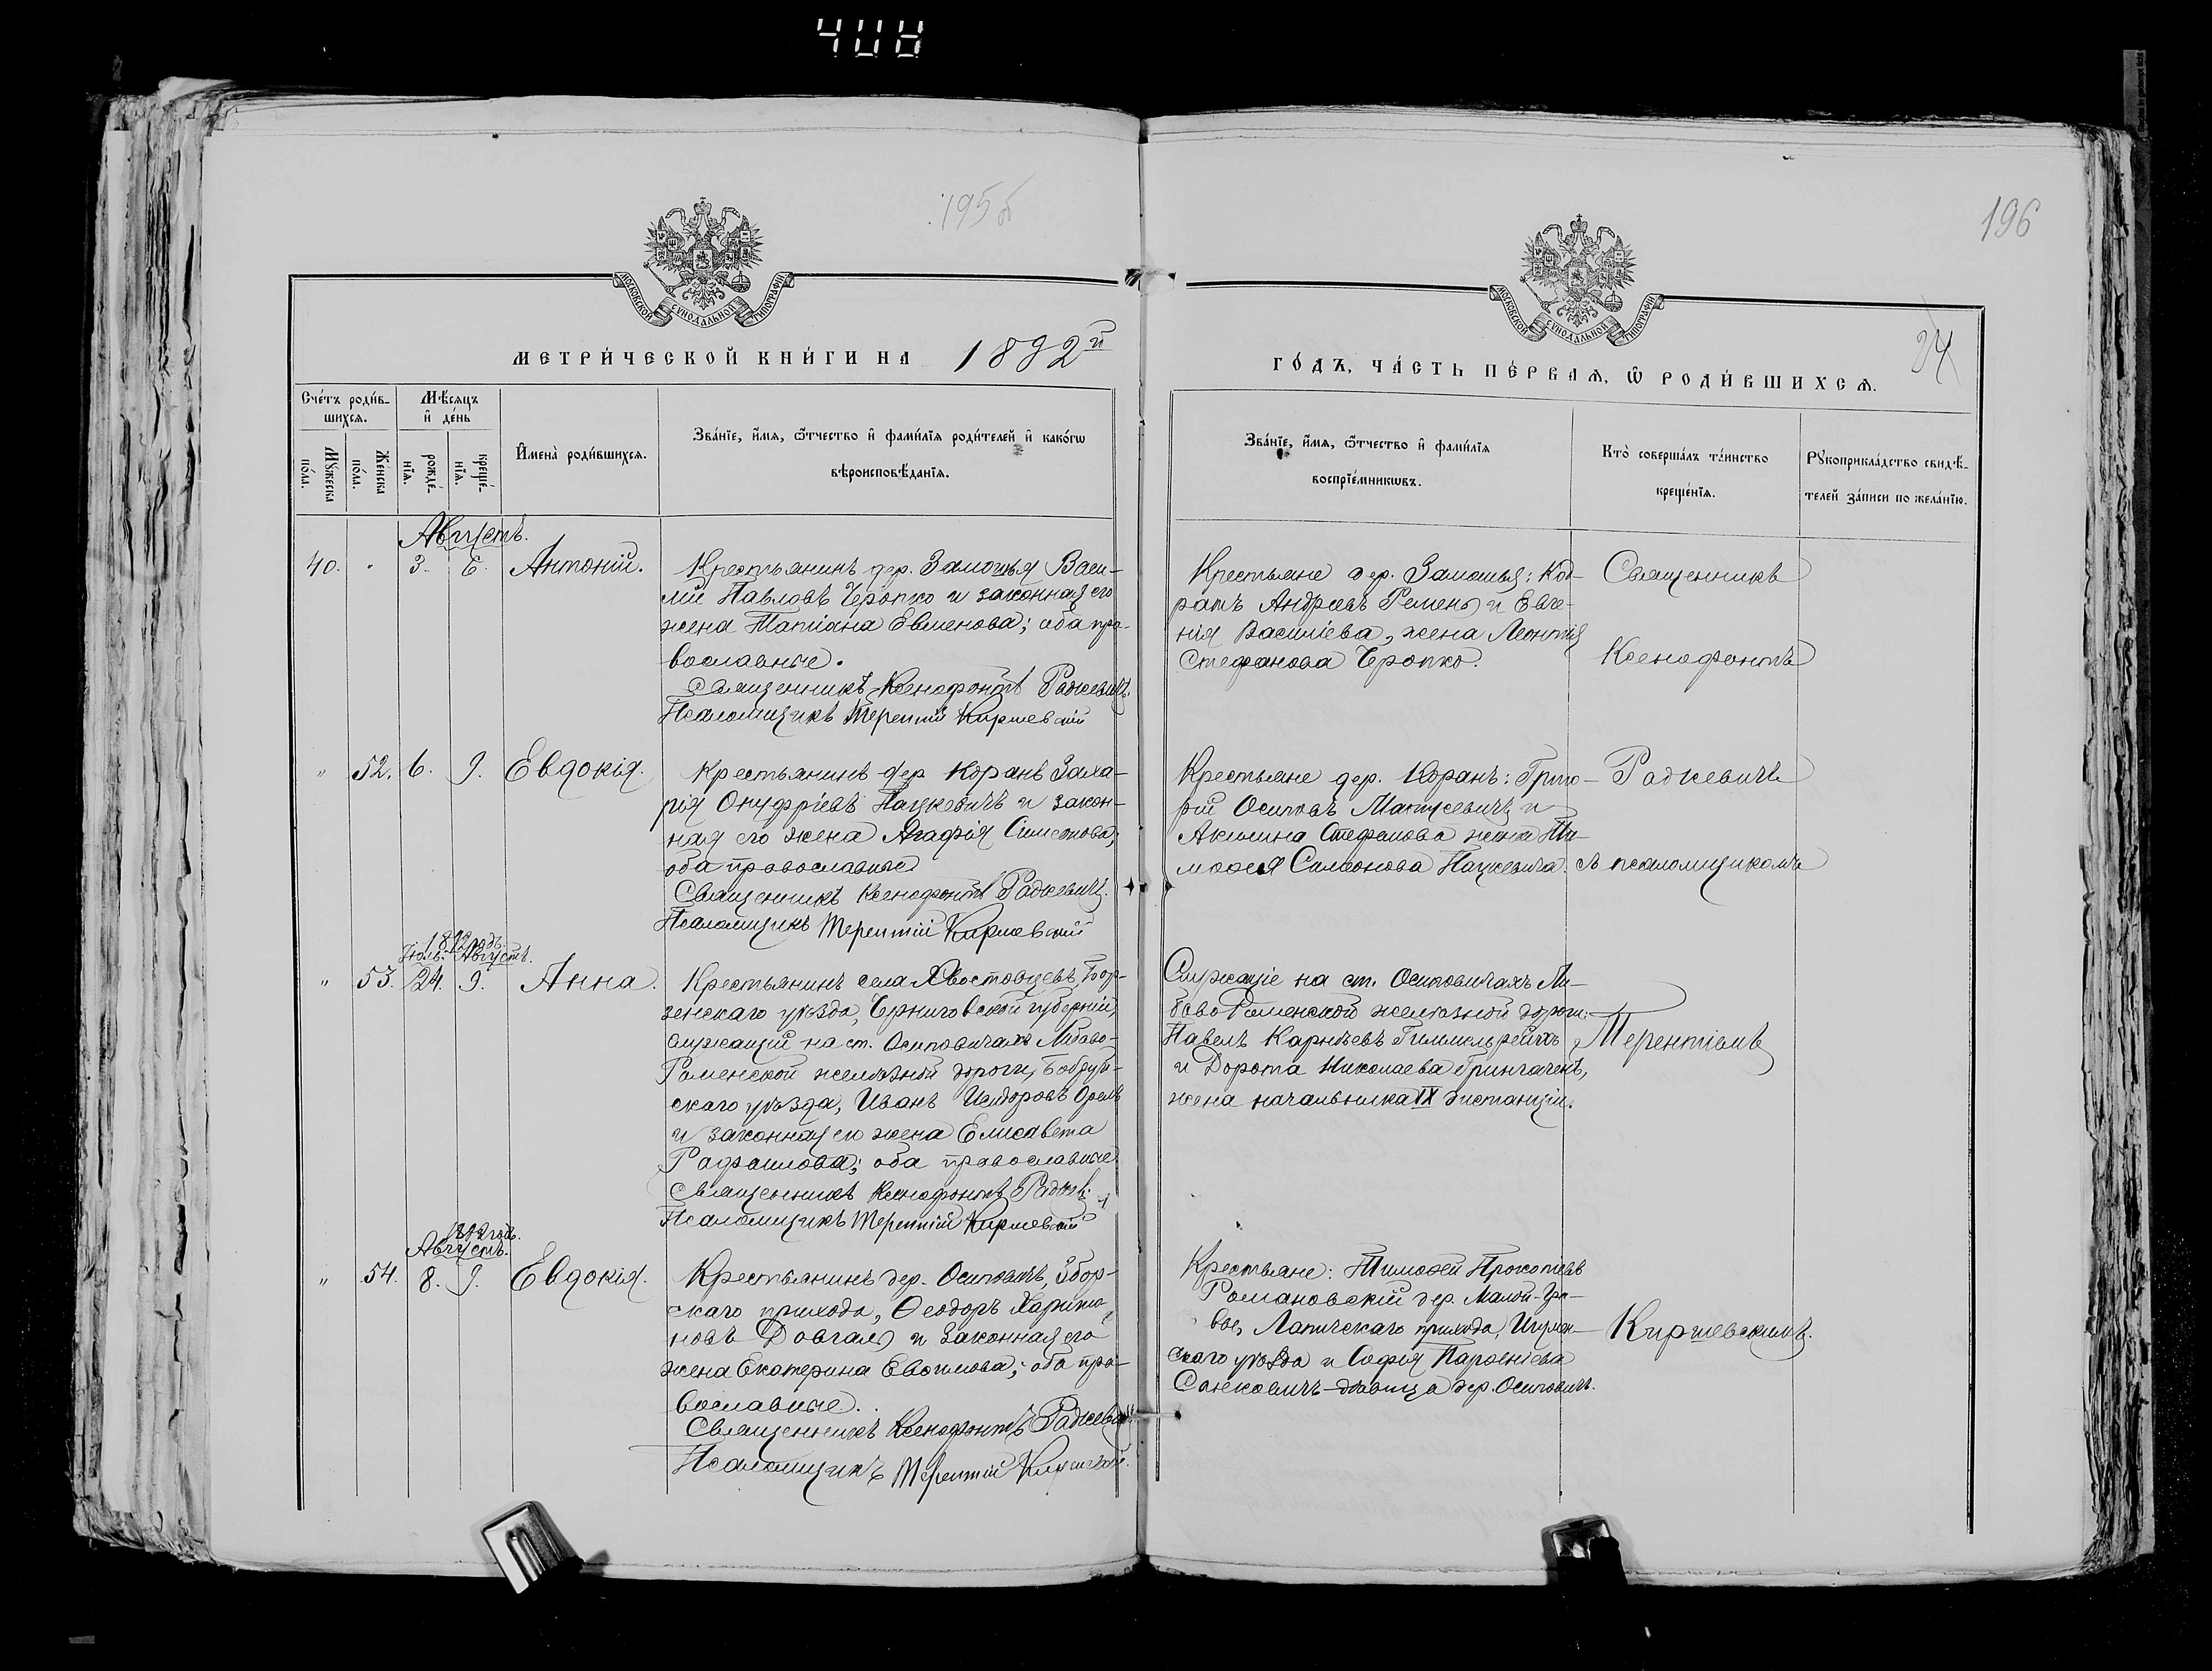 408
195 об
196
МОСКОВСКОЙ СѴНОДАЛЬНОЙ ТИПОГРАФІИ
МОСКОВСКОЙ СѴНОДАЛЬНОЙ ТИПОГРАФІИ
МЕТРИ́ЧЕСКОЙ КНИ́ГИ НА 1892й
ГО́ДЪ, ЧА́СТЬ ПЕ́РВАѦ, Ѡ҆ РОДИ́ВШИХСѦ.
24
Сче́тъ роди́в-
шихсѧ.
Мꙋ́жеска
по́ла.
Же́нска
по́ла.
Мѣ́сѧцъ
и҆ де́нь
рожде́-
нїѧ.
креще́-
нїѧ.
И҆мена̀ роди́вшихсѧ.
Зва́нїе, и҆́мѧ, ѻ҆́тчество и҆ фами́лїѧ роди́телей и҆ како́гѡ
вѣроисповѣ́данїѧ.
Зва́нїе, и҆́мѧ, ѻ҆́тчество и҆ фами́лїѧ
воспрїе́мникѡвъ.
Кто̀ соверша́лъ та́инство
креще́нїѧ.
Рꙋкоприкла́дство свидѣ́-
телей за́писи по жела́нїю.
Августъ.
40. " 3. 6. Антоній.
Крестьянинъ дер. Замошья Васи-
лій Павловъ Чропко и законная его
жена Татіана Евменова; оба пра-
вославные.
Священникъ Ксенофонтъ Радкевичъ.
Псаломщикъ Терентій Киршевскій
Крестьяне дер. Замошья: Код-
ратъ Андреевъ Ремень и Евге-
нія Василіева, жена Леонтія
Стефанова Чропко.
Священникъ
Ксенофонтъ
" 52. 6. 9. Евдокія.
Крестьянинъ дер Коранъ Заха-
рія Онуфріевъ Пацкевичъ и закон-
ная его жена Агафія Симеонова;
оба православные
Священникъ Ксенофонтъ Радкевичъ.
Псаломщикъ Терентій Киршевскій
Крестьяне дер. Коранъ: Григо-
рій Осиповъ Матусевичъ и
Акилина Стефанова жена Ти-
моѳея Симеонова Пацкевича.
Радкевичъ
съ псаломщикомъ
1892 годъ.
Іюль. Августъ.
" 53. 24. 9. Анна.
Крестьянинъ села Хвостовцевъ Бор-
зенскаго уѣзда, Черниговской губерніи,
служащій на ст. Осиповичахъ Либаво-
Роменской желѣзной дороги, Бобруй-
скаго уѣзда, Иванъ Исидоровъ Орелъ
и законная его жена Елисавета
Рафаилова; оба православные
Священникъ Ксенофонтъ Радкев:
Псаломщикъ Терентій Киршевскій
Служащіе на ст. Осиповичахъ Ли-
баво Роменской желѣзной дороги:
Павелъ Корнѣевъ Гиммельрейхъ
и Дорота Николаева Грингаченъ,
жена начальника IX дистанціи.
Терентіемъ
1892 годъ.
Августъ.
" 54. 8. 9. Евдокія.
Крестьянинъ дер. Осиповичъ, Збор-
скаго прихода, Ѳеодоръ Харито-
новъ Довгаль и законная его
жена Екатерина Евфимова; оба пра-
вославные.
Священникъ Ксенофонтъ Радкевичъ
Псаломщикъ Терентій Киршевскій.
Крестьяне: Тимоѳей Прокопіевъ
Романовскій дер. Малой-Гра-
вье, Лапичскаго прихода, Игумен-
скаго уѣзда и Софія Парѳеніева
Санковичъ-дѣвица дер. Осиповичъ.
Киршевскимъ.